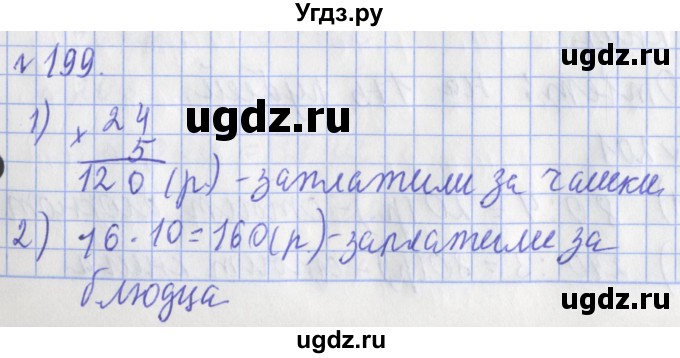 Угдз.ру
ugdz.ru
№ 199.
1) × 24
ugdz.ru
5
120 (р.) - заплатили за чашки.
2) 16 · 10 = 160 (р.) - заплатили за
блюдца
ugdz.ru
ugdz.ru
ugdz.ru